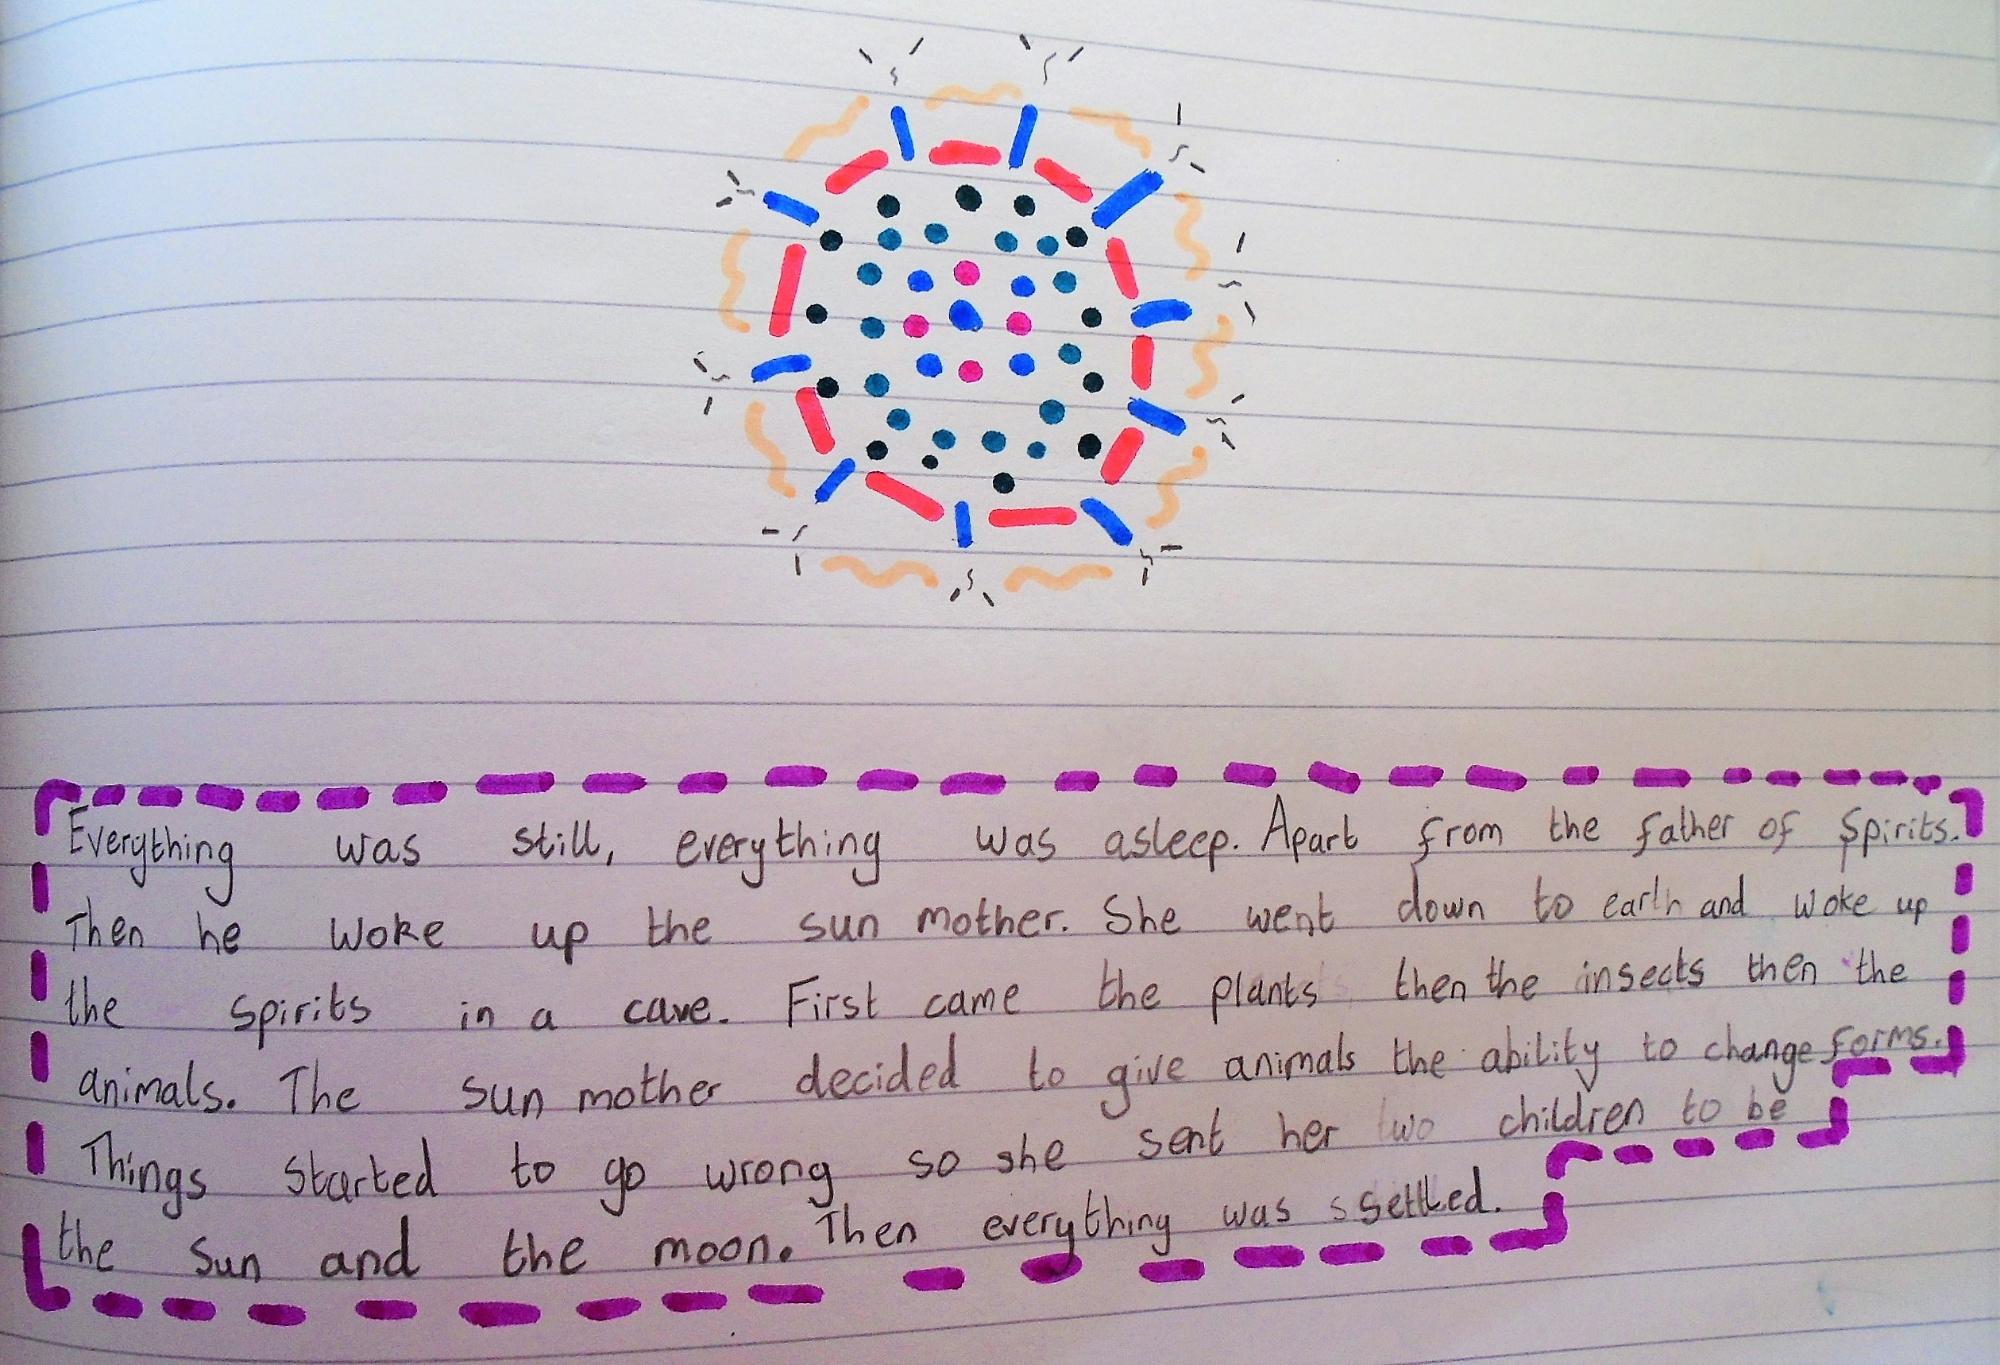 Everything was still, everything was asleep. Apart from the father of spirits.
Then he woke up the sun mother. She went down to earth and woke up
the spirits in a cave. First came the plants then the insects then the
animals. The sun mother decided to give animals the ability to change forms.
Things started to go wrong so she sent her two children to be
the sun and the moon. Then everything was settled.